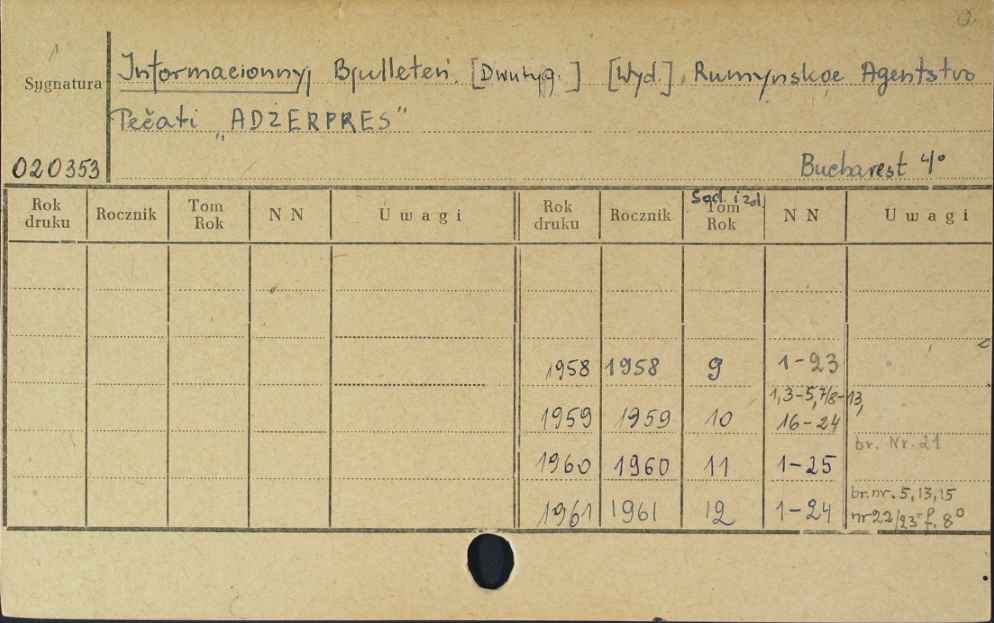 Sygnatura
Informacionnyj Bjulleteń. [Dwutyg.] [Wyd.] Rumynskoe Agentstvo
Pečati „ADŻERPRES"
020353
Bucharest 4°
Rok druku Rocznik Tom Rok N N Uwagi Rok druku Rocznik Tom Rok N N Uwagi
1958 1958 9 1-23
1,3-5,7/8-13,
1959 1959 10 16-24
br. Nr. 21
1960 1960 11 1-25
br. nr. 5, 13, 15
1961 1961 12 1-24 nr 22/23 = f. 8°